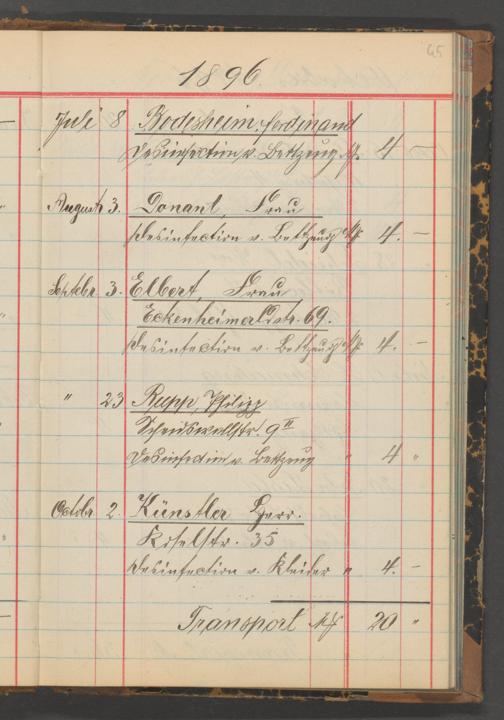 65
1896.
Juli 8 Bodesheim, Ferdinand
Desinfection v. Bettzeug M 4 —
August 3. Donant, Frau
Desinfection v. Bettzeug M 4. —
Septebr. 3. Elbert, Frau
Eckenheimerldstr. 69.
Desinfection v. Bettzeug M 4. —
" 23 Rupp, Philipp
9 II
Desinfection v. Bettzeug " 4 "
Octobr. 2. Künstler Herr.
Koselstr. 35
Desinfection v. Kleider " 4. —
Transport M 20 "